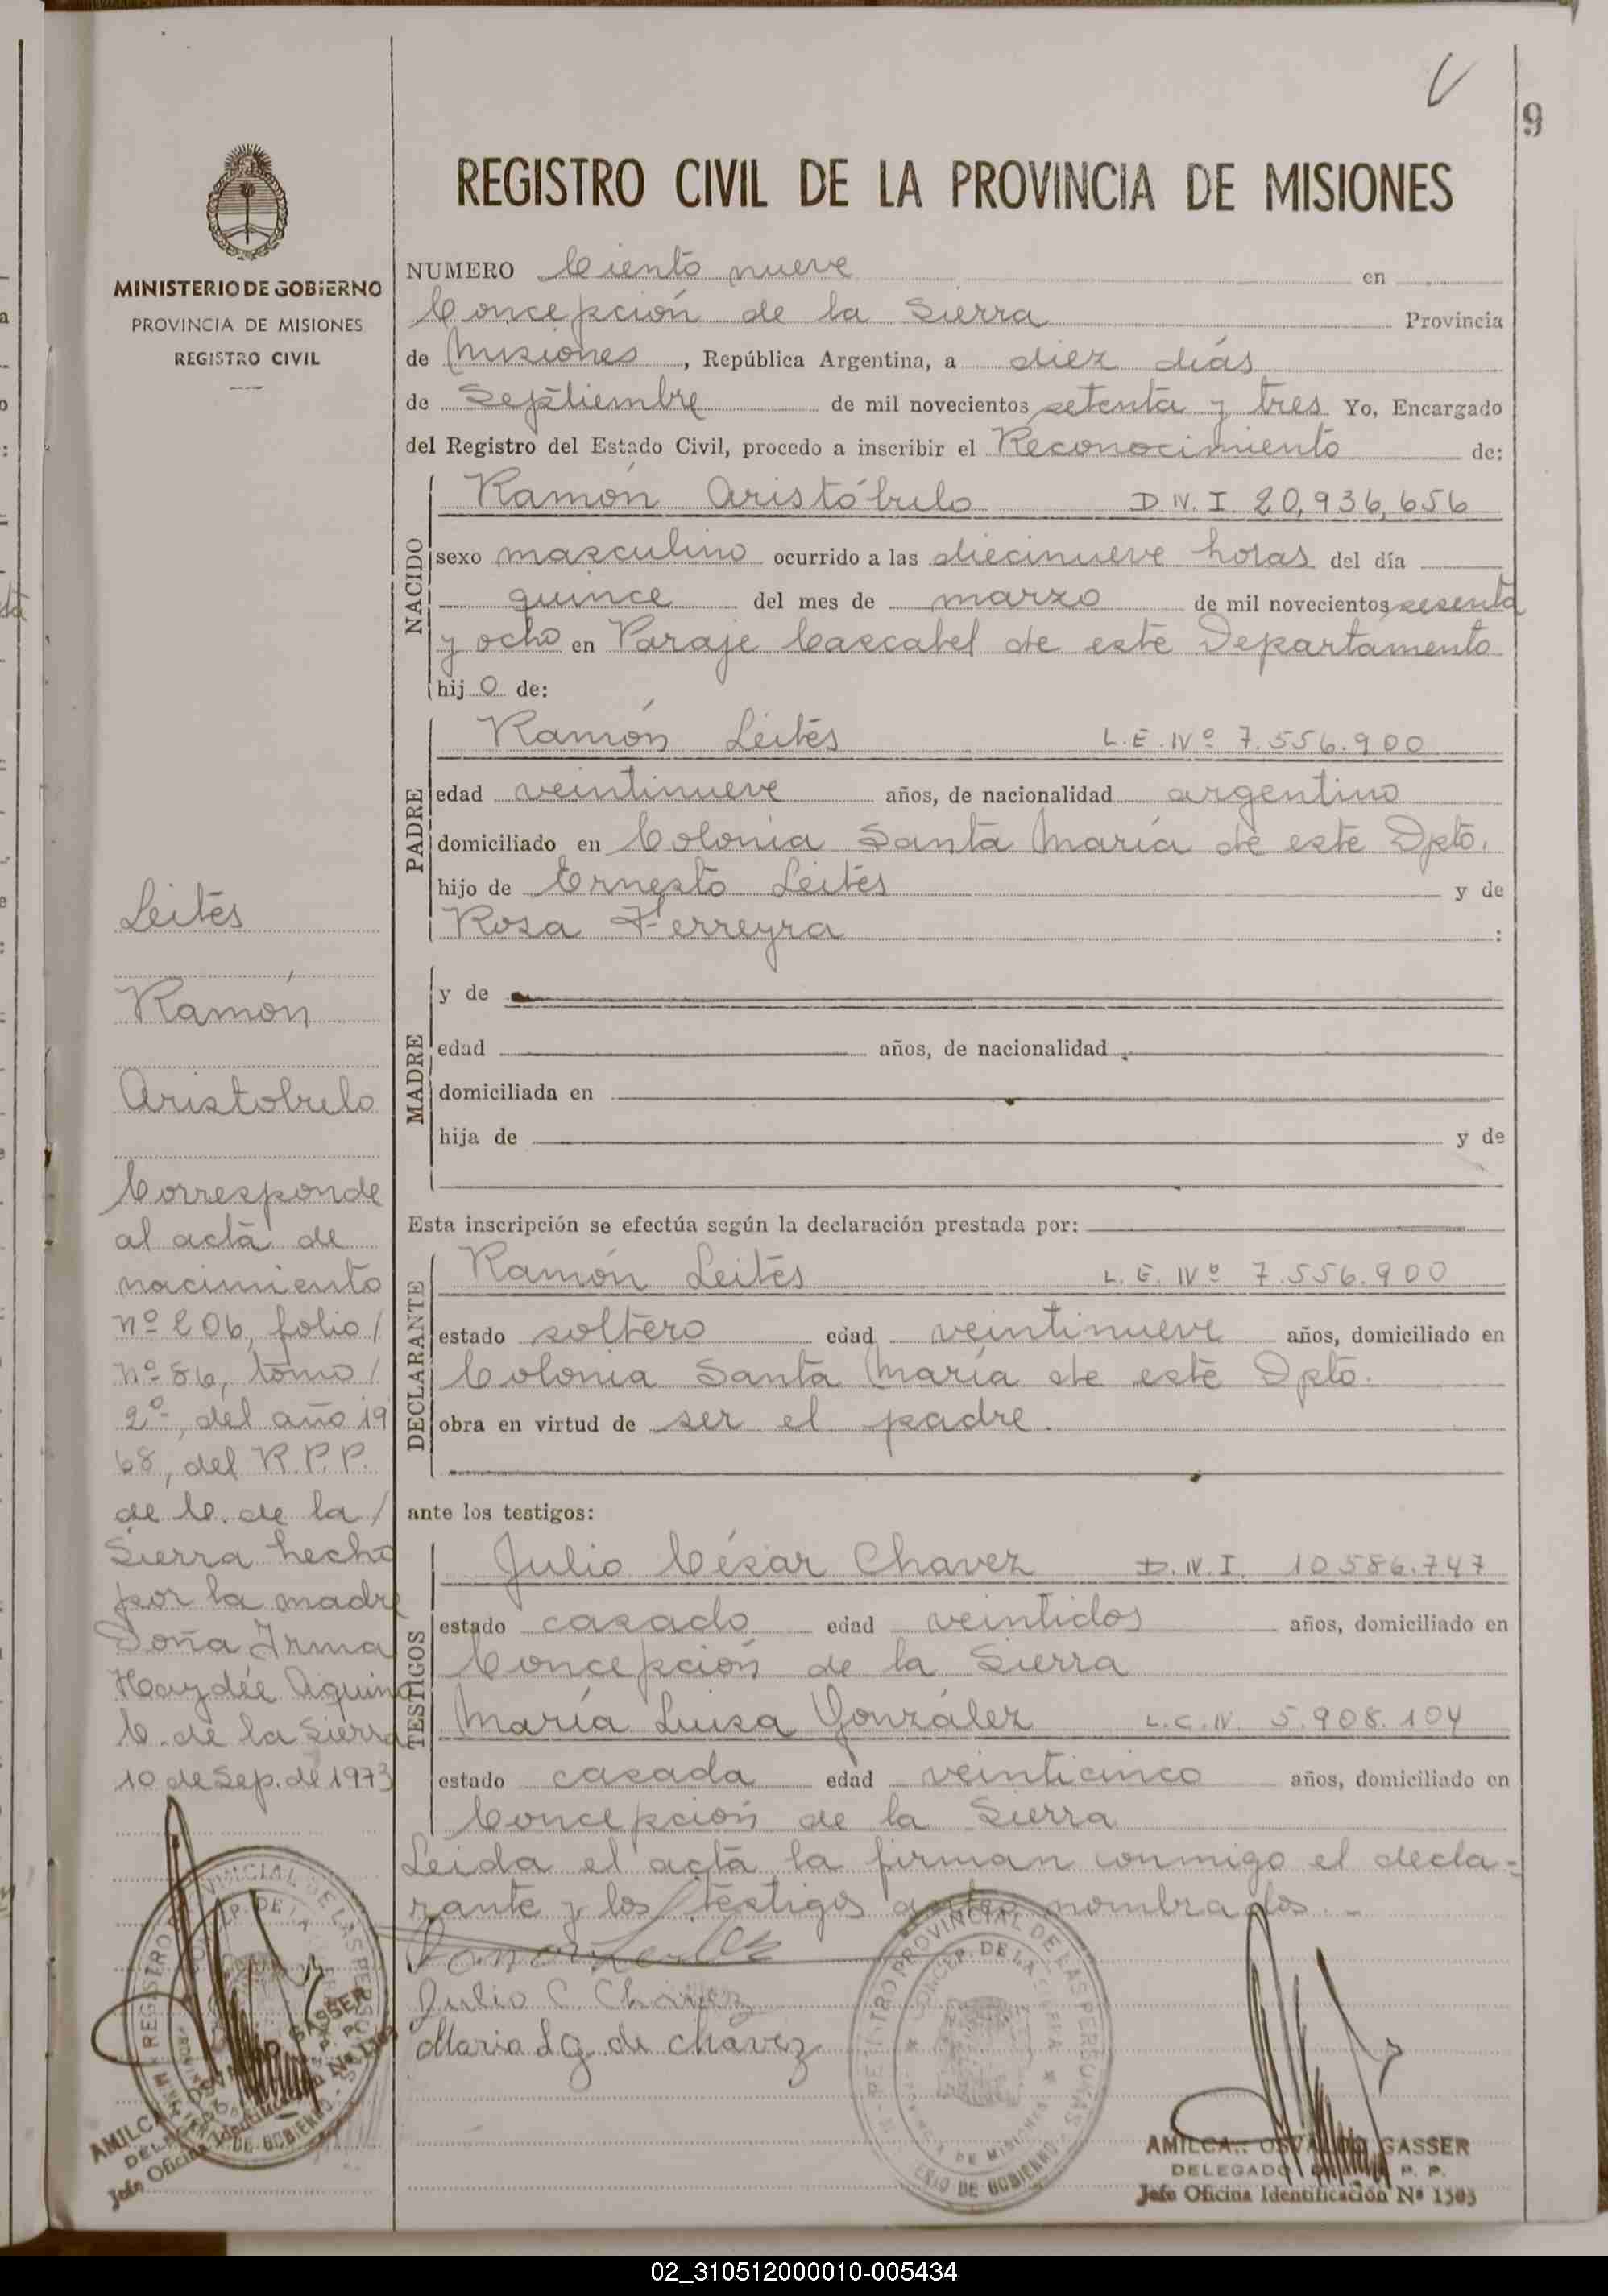 9
REGISTRO CIVIL DE LA PROVINCIA DE MISIONES
MINISTERIO DE GOBIERNO
PROVINCIA DE MISIONES
REGISTRO CIVIL
NUMERO Ciento nueve en
Concepción de la Sierra Provincia
de Misiones, República Argentina, a diez días
de Septiembre de mil novecientos setenta y tres Yo, Encargado
del Registro del Estado Civil, procedo a inscribir el Reconocimiento de:
NACIDO
Ramón Aristóbulo D.N.I. 20,936,656
sexo masculino ocurrido a las diecinueve horas del día
quince del mes de marzo de mil novecientos sesenta
y ocho en Paraje Cascabel de este Departamento
hijo de:
PADRE
Ramón Leites L.E. Nº 7.556.900
edad veintinueve años, de nacionalidad argentino
domiciliado en Colonia Santa María de este Dpto.
hijo de Ernesto Leites y de
Rosa Ferreyra :
MADRE
y de
edad años, de nacionalidad
domiciliada en
hija de y de
Esta inscripción se efectúa según la declaración prestada por:
DECLARANTE
Ramón Leites L.E. Nº 7.556.900
estado soltero edad veintinueve años, domiciliado en
Colonia Santa María de este Dpto.
obra en virtud de ser el padre.
ante los testigos:
TESTIGOS
Julio César Chavez D.N.I. 10.586.747
estado casado edad veintidos años, domiciliado en
Concepción de la Sierra
María Luisa González L.C.N. 5.908.104
estado casada edad veinticinco años, domiciliado en
Concepción de la Sierra
Leida el acta la firman conmigo el decla-
rante y los testigos antes nombrados.-
Julio C Chavez
Maria L G de Chavez
Leites
Ramón
Aristobulo
Corresponde
al acta de
nacimiento
nº 206, folio/
nº 86, tomo/
2º, del año 19
68, del R.P.P.
de C. de la/
Sierra hecho
por la madre
Doña Irma
Haydée Aquino
C. de la Sierra
10 de Sep. de 1973
REGISTRO PROVINCIAL DE LAS PERSONAS
CONCEP. DE LA SIERRA
MINISTERIO DE GOBIERNO
AMILCAR OSVALDO GASSER
Jefe Oficina Identificación Nº 1505
REGISTRO PROVINCIAL DE LAS PERSONAS
CONCEP. DE LA SIERRA
DE MISIONES
DE GOBIERNO
AMILCAR OSVALDO GASSER
DELEGADO P. P.
Jefe Oficina Identificación Nº 1505
02_310512000010-005434